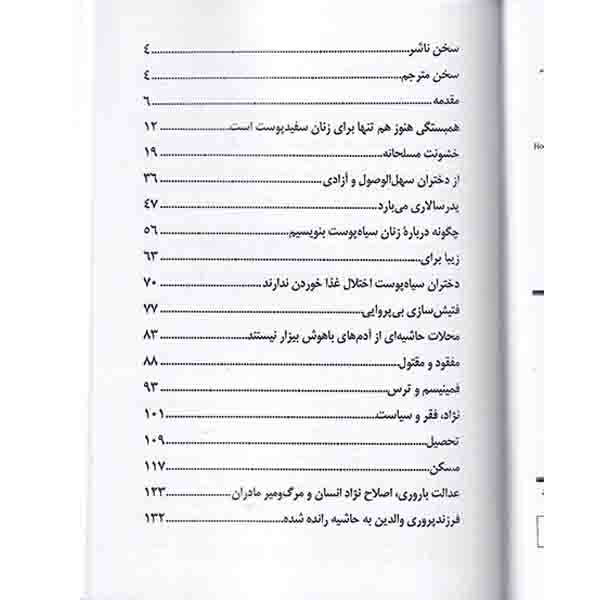 سخن ناشر ۴
سخن مترجم ۴
مقدمه ۶
همبستگی هنوز هم تنها برای زنان سفیدپوست است ۱۲
خشونت مسلحانه ۱۹
از دختران سهل‌الوصول و آزادی ۳۶
پدرسالاری می‌بارد ۴۷
چگونه دربارهٔ زنان سیاه‌پوست بنویسیم ۵۶
زیبا برای ۶۳
دختران سیاه‌پوست اختلال غذا خوردن ندارند ۷۰
فتیش‌سازی بی‌پروایی ۷۷
محلات حاشیه‌ای از آدم‌های باهوش بیزار نیستند ۸۳
مفقود و مقتول ۸۸
فمینیسم و ترس ۹۳
نژاد، فقر و سیاست ۱۰۱
تحصیل ۱۰۹
مسکن ۱۱۷
عدالت باروری، اصلاح نژاد انسان و مرگ‌ومیر مادران ۱۲۳
فرزندپروری والدین به حاشیه رانده شده ۱۳۲